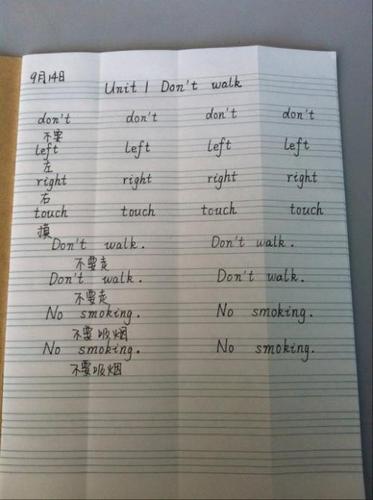 9月14日
Unit 1 Don't walk
don't don't don't don't
不要
left left left left
左
right right right right
右
touch touch touch touch
摸
Don't walk. Don't walk.
不要走
Don't walk. Don't walk.
不要走
No smoking. No smoking.
不要吸烟
No smoking. No smoking.
不要吸烟